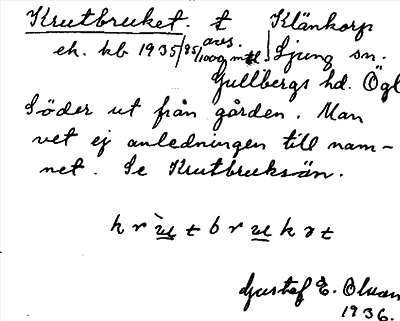 Krutbruket. t Klänkorp
ek. kb 1935/85 avs. Ljung sn.
Gullbergs hd. Ögl
Söder ut från gården. Man
vet ej anledningen till nam-
net. Se Krutbruksån.
krùtbrukət
Gustaf E. Olsson
1936.